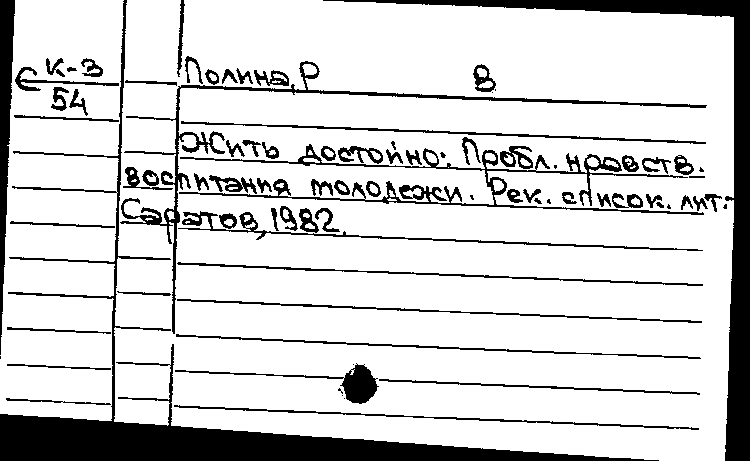 К-3
С
54
Полина, Р
В
Жить достойно: Пробл. нравств.
воспитания молодежи. Рек. список. лит.
Саратов, 1982.